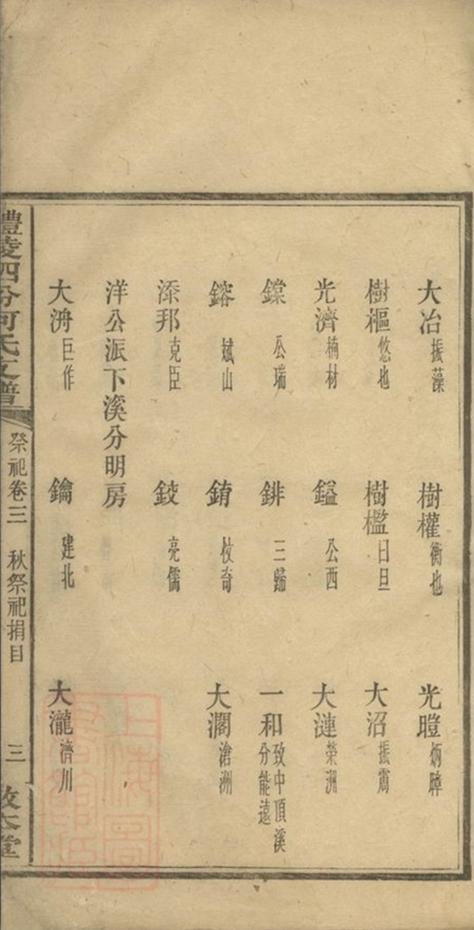 大冶振藻 樹權衡也 光暟炳暐
樹樞悠也 樹檻日旦 大沼振寰
光濟楠材 鎰公西 大漣榮洲
鏿公瑞 錐三歸 一和致中頂溪分能遠
鎔斌山 銪杖奇 大瀾滄洲
添邦克臣 鉸亮儒
洋公派下溪分明房
大洀巨作 鑰建北 大瀧濟川
醴陵四分何氏支譜 祭祀卷三 秋祭祀捐目 三 敦本堂